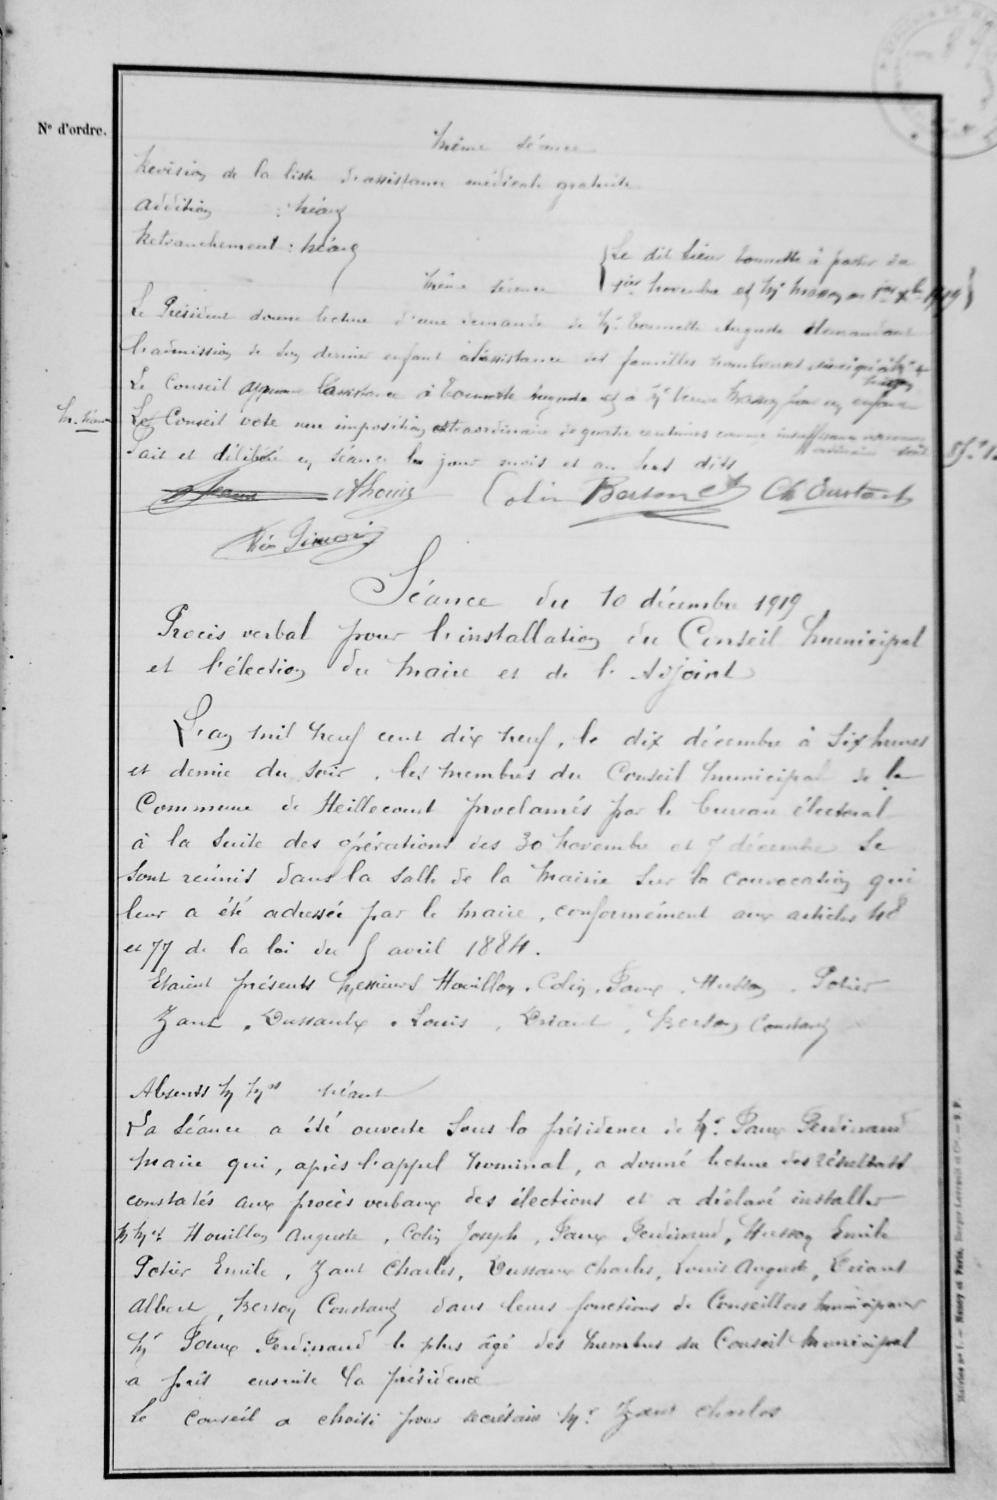 N° d'ordre.
Même séance
Revision de la liste d'assistance médicale gratuite
Addition : Néant
Retranchement : Néant
Même séance
(Le dit sieur Tonnette à partir du
1er Novembre et Mr Masson au 1er Xbre 1919)
Le Président donne lecture d'une demande de Mr. Tonnette Auguste demandant
l'admission de son dernier enfant à l'assistance des familles nombreuses
Le Conseil approuve l'assistance à Tonnette Auguste et à Mr Masson pour un enfant
M. séance
Le Conseil vote une imposition extraordinaire de quatre centimes comme insuffisance revenus
ordinaires soit
Fait et délibéré en séance les jour mois et an susdits
Colin
Ch Eustach
Séance du 10 décembre 1919
Procès verbal pour l'installation du Conseil Municipal
et l'élection du Maire et de l'Adjoint
L'an mil neuf cent dix neuf, le dix décembre à six heures
et demie du soir, les membres du Conseil Municipal de la
Commune de Heillecourt proclamés par le bureau électoral
à la suite des opérations des 30 Novembre et 7 décembre se
sont réunis dans la salle de la Mairie sur la convocation qui
leur a été adressée par le Maire, conformément aux articles 48
et 77 de la loi du 5 avril 1884.
Etaient présents Messieurs Houillon, Colin, Paux, Husson, Potier
Zant, Dussaulx, Louis, Briant, Merson Constant
Absents M Mrs néant
La Séance a été ouverte sous la présidence de Mr. Paux Ferdinand
Maire qui, après l'appel nominal, a donné lecture des résultats
constatés aux procès verbaux des élections et a déclaré installer
M Mrs Houillon Auguste, Colin Joseph, Paux Ferdinand, Husson Emile
Potier Emile, Zant Charles, Dussaux Charles, Louis Auguste, Briant
Albert, Merson Constant dans leurs fonctions de Conseillers Municipaux
Mr Paux Ferdinand le plus âgé des Membres du Conseil Municipal
a pris ensuite la présidence
Le Conseil a choisi pour secrétaire Mr. Zant Charles
Mairies n° 1. — Nancy et Paris, Berger-Levrault et Cie.